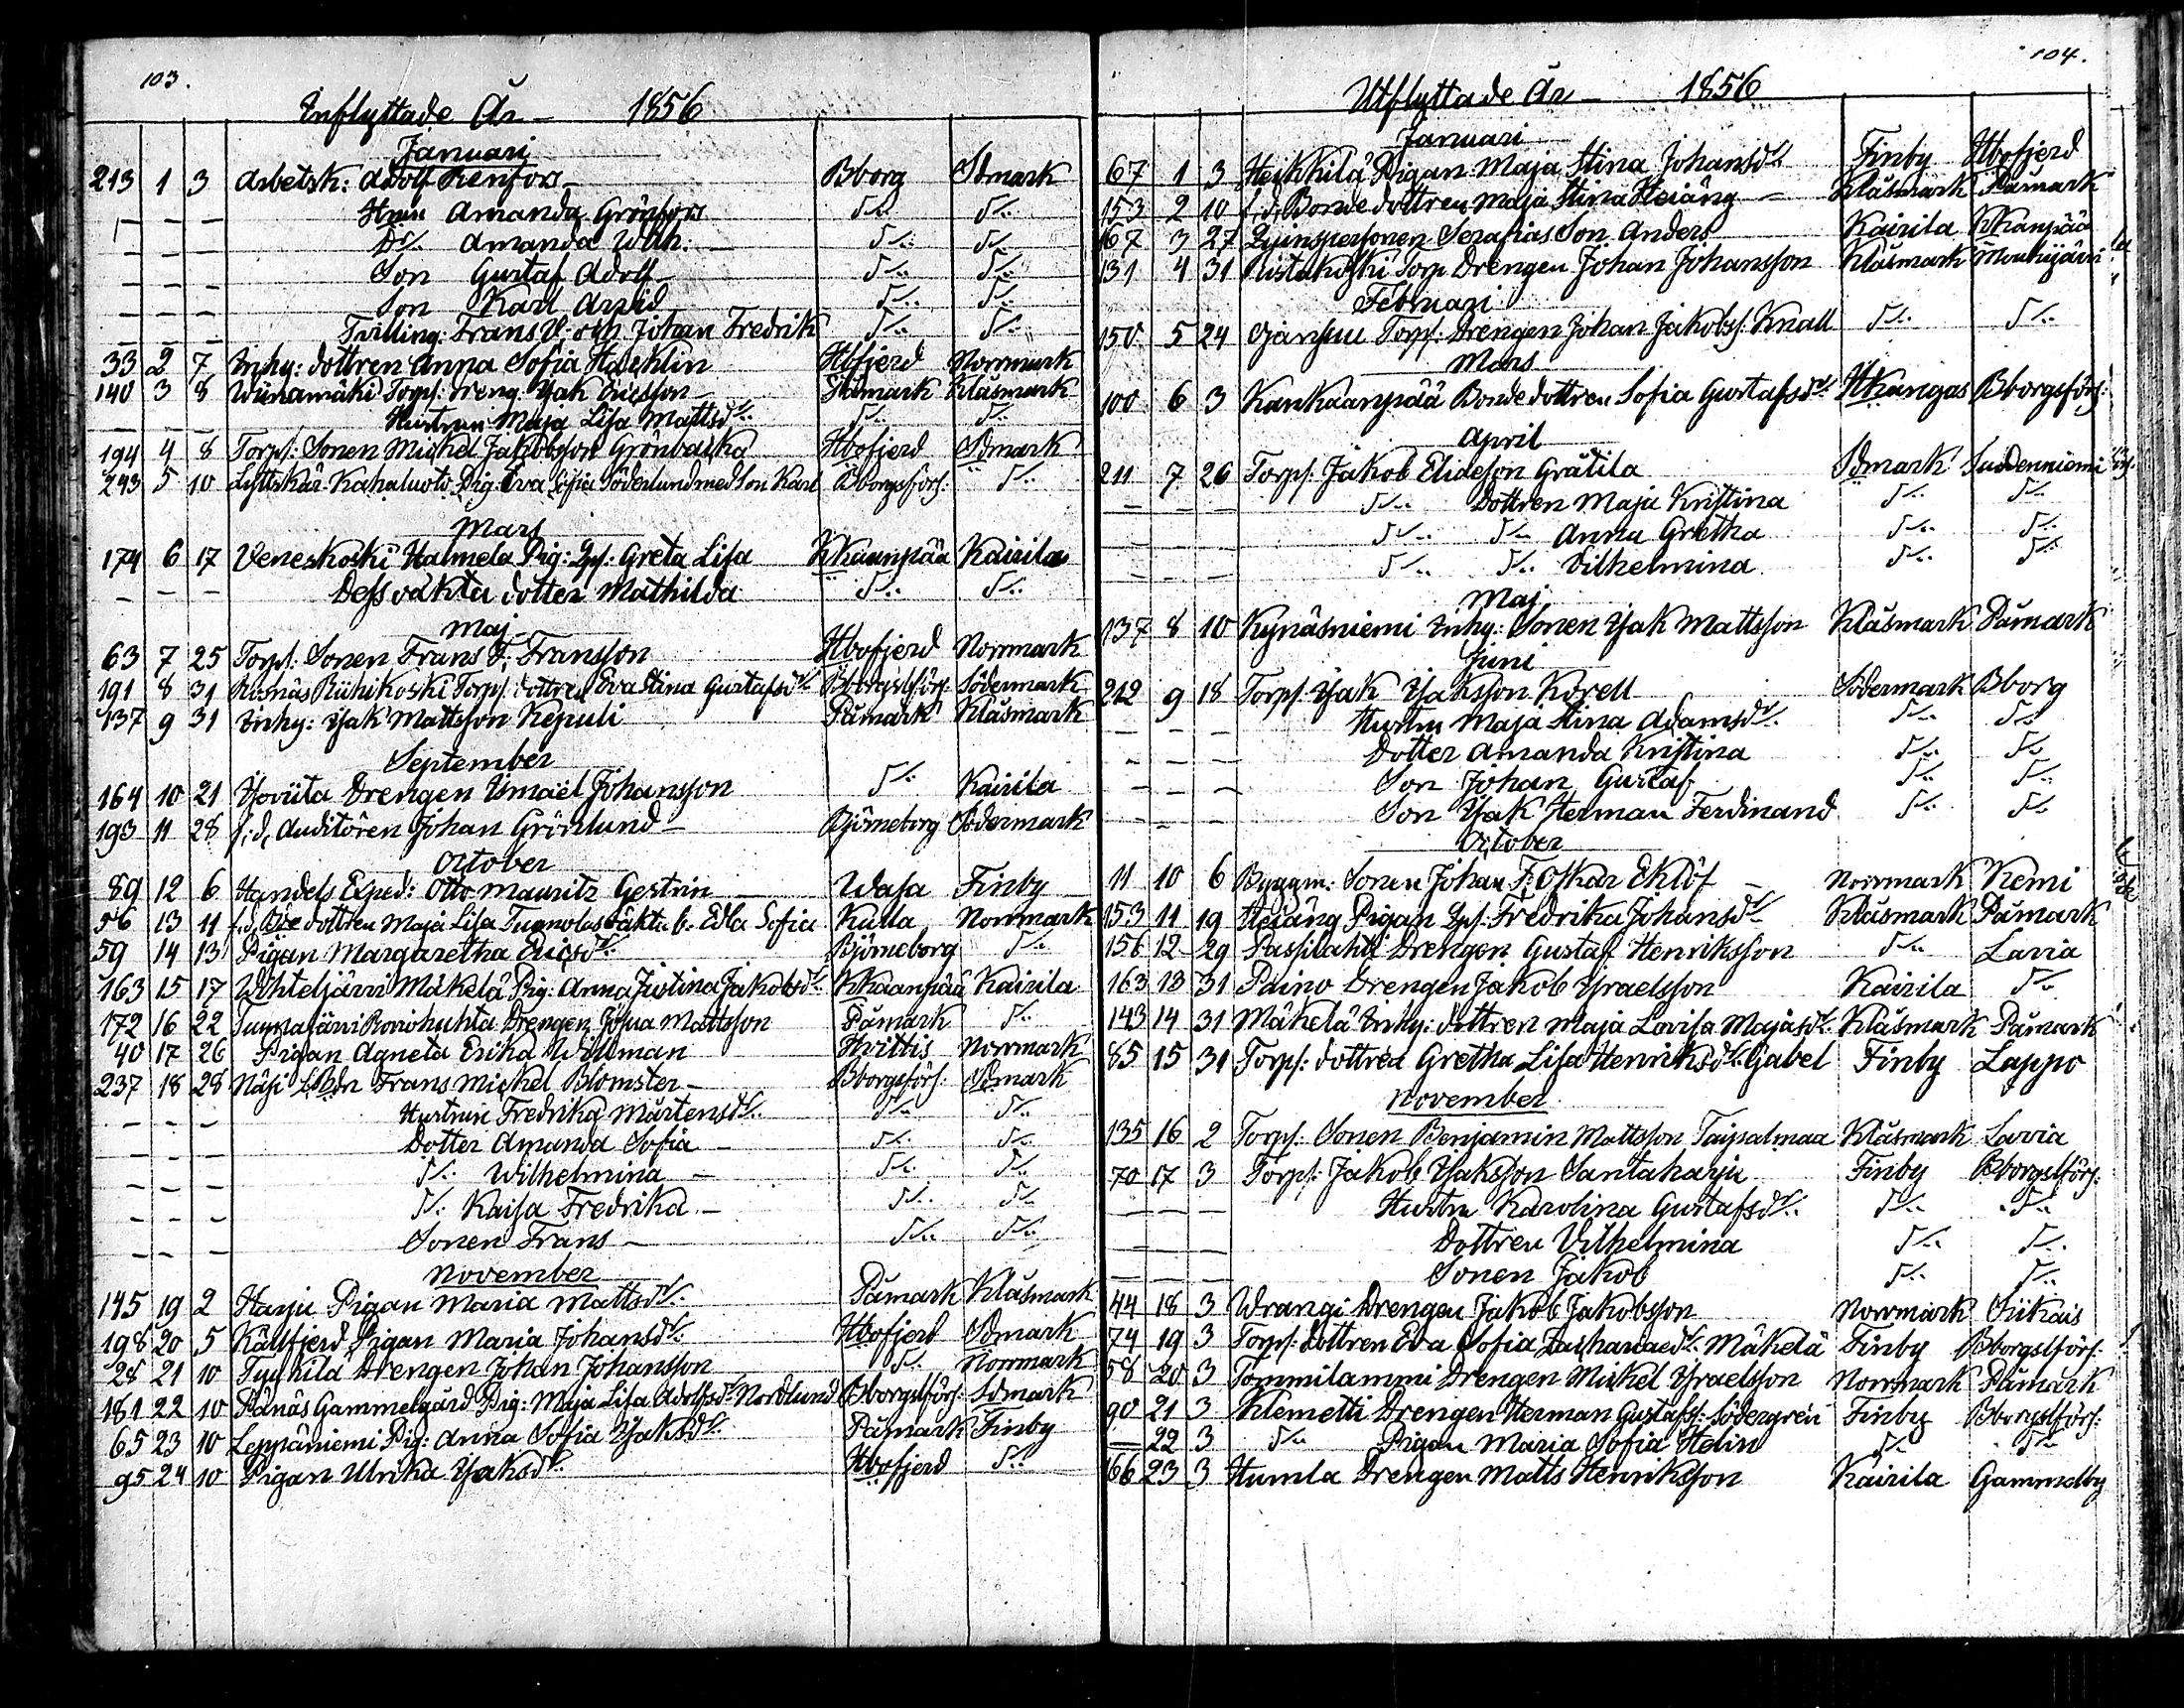 103.
Inflyttade År 1856
Januari
213 1 3 Arbetsk: Adolf Renfors Bborg Sdmark
— — — Hru Amanda Grönfors D:o D:o
— — — D:r Amanda Wilh: D:o D:o
— — — Son Gustaf Adolf D:o D:o
— — — Son Karl Arvid D:o D:o
— — — Tvilling: Frans V: och Johan Fredrik D:o D:o
33 2 7 Inhy: dottren Anna Sofia Hacklin Hbfjerd Norrmark
140 3 8 Wiinamäki Torps: dreng Isak Ericsson Påmark Klåsmark
— — — Hustrun Maja Lisa Mattsd:r D:o D:o
194 4 8 Torps: Sonen Mickel Jakobsson Grönbacka Hbofjerd Sdmark
243 5 10 Lyttskär Kahaluoto Pig: Eva Sofia Söderlund med Son Karl Bborgsförs: D:o
Mars
174 6 17 Veneskoski Halmela Pig: Qps: Greta Lisa KKaanpää Kairila
— — — Dess oäkta dotter Mathilda D:o D:o
Maj
63 7 25 Torps: Sonen Frans F. Fransson Hbofjerd Norrmark
191 8 31 Rosnäs Riihikoski Torps: dottren Eva Stina Gustafsd:r Bborgslförs: Södermark
137 9 31 Inhy: Isak Mattsson Kepuli Påmark Klåsmark
September
164 10 21 Isoviita Drengen Ismael Johansson D:o Kairila
193 11 28 f:d: Auditören Johan Grönlund Björneborg Södermark
October
89 12 6 Handels Exped: Otto Mauritz Gestrin Wasa Finby
56 13 11 f:d: Bde dottren Maja Lisa oäkta b: Edla Sofia Kulla Norrmark
59 14 13 Pigan Margaretha Ericsd:r Björneborg D:o
163 15 17 Wihteljärvi Mäkelä Pig: Anna Justina Jakobsd:r KKaanpää Kairila
172 16 22 Drengen Josua Mattsson Påmark D:o
40 17 26 Pigan Agneta Erika Willman Hvittis Norrmark
237 18 28 Näsi Bdn Frans Mickel Blomster Bborgsförs: Sdmark
— — — Hustrun Fredrika Mårtensd:r D:o D:o
— — — Dotter Amanda Sofia D:o D:o
— — — D:o Wilhelmina D:o D:o
— — — D:o Kaisa Fredrika D:o D:o
— — — Sonen Frans D:o D:o
November
145 19 2 Harju Pigan Maria Mattsd:r Påmark Klåsmark
198 20 5 Källfjerd Pigan Maria Johansd:r Hbofjerd Sdmark
28 21 10 Tyykilä Drengen Johan Johansson D:o Norrmark
181 22 10 Pånäs Gammelgård Pig: Maja Lisa Adolfsd:r Nordlund Bborgslförs: Sdmark
65 23 10 Leppäniemi Pig: Anna Sofia Isaksd:r Påmark Finby
95 24 10 Pigan Ulrika Isaksd:r Hbofjerd D:o
104.
Utflyttade År 1856
Januari
67 1 3 Heikkilä Pigan Maja Stina Johansd:r Finby Hbofjerd
153 2 10 f:d: Bonde dottren Maja Stina Heiäng Klåsmark Påmark
167 3 27 Qvinspersonen Serafias Son Anders Kairila KKanpää
131 4 31 Ristakoski Torp Drengen Johan Johansson Klåsmark Mouhijärvi
Februari
150 5 24 Ojansuu Torps: Drengen Johan Jakobss: Knall D:o D:o
Mars
100 6 3 Kankaanpää Bondedottren Sofia Gustafsd:r HKangas Bborgsförs:
April
211 7 26 Torps: Jakob Eliasson Grätila Sdmark Suodenniemi
— — — D:o Dottren Maja Kristina D:o D:o
— — — D:o D:o Anna Gretha D:o D:o
— — — D:o D:o Vilhelmina D:o D:o
Maj
137 8 10 Kynäsniemi Inhy: Sonen Isak Mattsson Klåsmark Påmark
Juni
212 9 18 Torps: Isak Isaksson Korell Södermark Bborg
— — — Hustru Maja Stina Adamsd:r D:o D:o
— — — Dotter Amanda Kristina D:o D:o
— — — Son Johan Gustaf D:o D:o
— — — Son Isak Herman Ferdinand D:o D:o
October
11 10 6 Byggm: Sonen Johan F. Oskar Eklöf Norrmark Kemi
153 11 19 Heiäng Pigan Qps: Fredrika Johansd:r Klåsmark Påmark
156 12 29 Passilahti Drengen Gustaf Henriksson D:o Lavia
163 13 31 Paino Drengen Jakob Israelsson Kairila D:o
143 14 31 Mäkelä Inhy: dottren Maja Lovisa Majasd:r Klåsmark Påmark
85 15 31 Torps: dottren Gretha Lisa Henriksd:r Gabel Finby Lappo
November
135 16 2 Torps: Sonen Benjamin Mattsson Taipalmaa Klåsmark Lavia
70 17 3 Torps: Jakob Isaksson Santaharju Finby Bborgslförs:
— — — Hustru Karolina Gustafsd:r D:o D:o
— — — Dottren Vilhelmina D:o D:o
— — — Sonen Jakob D:o D:o
44 18 3 Wrangi Drengen Jakob Jakobsson Norrmark Siikais
74 19 3 Torps: dottren Eva Sofia Zachariaed:r Mäkelä Finby Bborgslförs:
58 20 3 Tommilammi Drengen Mickel Israelsson Norrmark Påmark
90 21 3 Klemetti Drengen Herman Gustafs: Södergrén Finby Bborgslförs:
— 22 3 D:o Pigan Maria Sofia Helin D:o D:o
166 23 3 Humla Drengen Matts Henriksson Kairila Gammelby